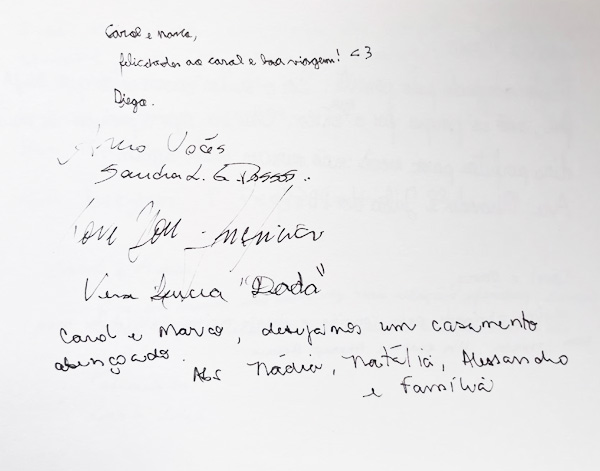 Carol e Marco,
felicidades ao casal e boa viagem! <3
Diego.
Amo Vocês
Sandra L. G.
Love You
Vera Lucia "Dada"
Carol e Marco, desejamos um casamento
abençoado.
Abs Nádia, Natália, Alessandro
e família